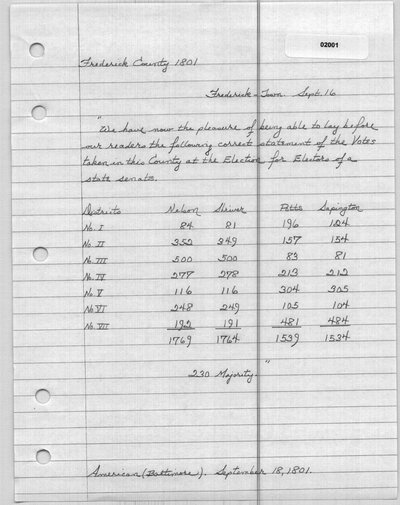 02001
Frederick County 1801
Frederick-Town Sept. 16
"We have now the pleasure of being able to lay before
our readers the following correct statement of the Votes
taken in this County at the Election for Electors of a
state senate.
Districts Nelson Shriver Potts Sapington
No. I 84 81 196 194
No. II 352 349 157 154
No. III 500 500 83 81
No. IV 277 278 213 212
No. V 116 116 304 305
No. VI 248 249 105 104
No. VII 192 191 481 484
1769 1764 1539 1534
230 Majority."
American (Baltimore). September 18, 1801.